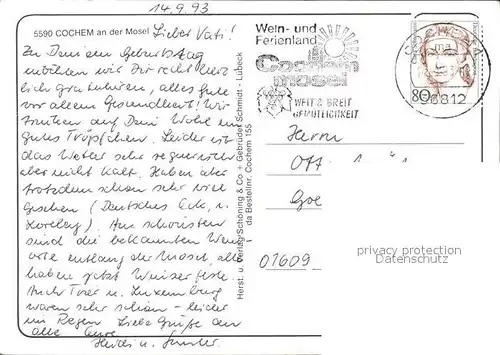 14.9.93
5590 COCHEM an der Mosel
Lieber Vati!
Zu Deinem Geburtstag
möchten wir Dir recht herz
lich gratulieren, alles gute
vor allem Gesundheit! Wir
trinken auf Dein Wohl ein
gutes Tröpfchen. Leider ist
das Wetter sehr regnerisch
aber nicht kalt. Haben aber
trotzdem schon sehr viel
gesehen (Deutsches Eck, u.
Loreley). Am schönsten
sind die bekannten Wein
orte entlang der Mosel, alle
haben jetzt Winzerfeste.
Auch Trier u. Luxemburg
waren sehr schön - leider
im Regen. Liebe Grüße an
alle Eure
Heidi u.
Herst. u. Verlag Schöning & Co + Gebrüder Schmidt - Lübeck
da Bestellnr. Cochem 155
Wein- und
Ferienland
Cochem
mosel
WEIT & BREIT
GEMÜTLICHKEIT
80
6812
Herrn
Ott
Goe
01609
privacy protection
Datenschutz